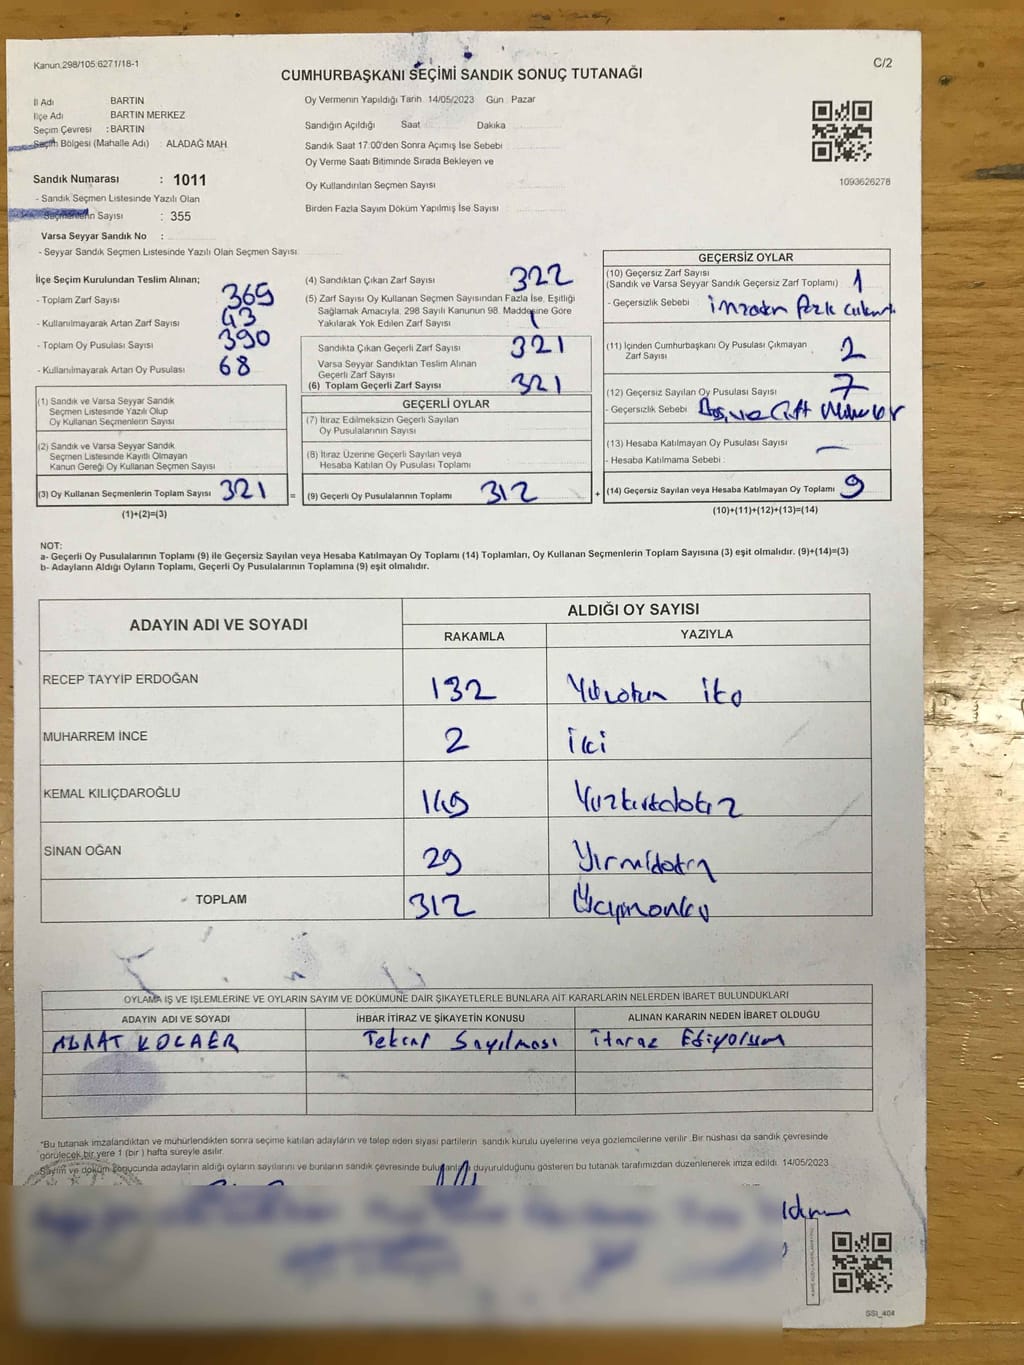 Kanun.298/105 6271/18-1
C/2
CUMHURBAŞKANI SEÇİMİ SANDIK SONUÇ TUTANAĞI
İl Adı BARTIN
İlçe Adı BARTIN MERKEZ
Seçim Çevresi : BARTIN
Seçim Bölgesi (Mahalle Adı) : ALADAĞ MAH.
Sandık Numarası : 1011
- Sandık Seçmen Listesinde Yazılı Olan
Seçmenlerin Sayısı : 355
Varsa Seyyar Sandık No :
- Seyyar Sandık Seçmen Listesinde Yazılı Olan Seçmen Sayısı
Oy Vermenin Yapıldığı Tarih 14/05/2023 Gün : Pazar
Sandığın Açıldığı Saat Dakika
Sandık Saat 17:00'den Sonra Açımış İse Sebebi
Oy Verme Saati Bitiminde Sırada Bekleyen ve
Oy Kullandırılan Seçmen Sayısı
Birden Fazla Sayım Döküm Yapılmış İse Sayısı
1093626278
İlçe Seçim Kurulundan Teslim Alınan;
- Toplam Zarf Sayısı 365
- Kullanılmayarak Artan Zarf Sayısı 43
- Toplam Oy Pusulası Sayısı 390
- Kullanılmayarak Artan Oy Pusulası 68
(1) Sandık ve Varsa Seyyar Sandık
Seçmen Listesinde Yazılı Olup
Oy Kullanan Seçmenlerin Sayısı
(2) Sandık ve Varsa Seyyar Sandık
Seçmen Listesinde Kayıtlı Olmayan
Kanun Gereği Oy Kullanan Seçmen Sayısı
(3) Oy Kullanan Seçmenlerin Toplam Sayısı 321
(1)+(2)=(3)
=
(4) Sandıktan Çıkan Zarf Sayısı 322
(5) Zarf Sayısı Oy Kullanan Seçmen Sayısından Fazla İse, Eşitliği
Sağlamak Amacıyla, 298 Sayılı Kanunun 98. Maddesine Göre
Yakılarak Yok Edilen Zarf Sayısı : 1
Sandıkta Çıkan Geçerli Zarf Sayısı 321
Varsa Seyyar Sandıktan Teslim Alınan
Geçerli Zarf Sayısı
(6) Toplam Geçerli Zarf Sayısı 321
GEÇERLİ OYLAR
(7) İtiraz Edilmeksizin Geçerli Sayılan
Oy Pusulalarının Sayısı
(8) İtiraz Üzerine Geçerli Sayılan veya
Hesaba Katılan Oy Pusulası Toplamı
(9) Geçerli Oy Pusulalarının Toplamı 312
+
GEÇERSİZ OYLAR
(10) Geçersiz Zarf Sayısı
(Sandık ve Varsa Seyyar Sandık Geçersiz Zarf Toplamı) 1
- Geçersizlik Sebebi : imzadan fazla
(11) İçinden Cumhurbaşkanı Oy Pusulası Çıkmayan
Zarf Sayısı 2
(12) Geçersiz Sayılan Oy Pusulası Sayısı 7
- Geçersizlik Sebebi Boş ve Çift Mühür
(13) Hesaba Katılmayan Oy Pusulası Sayısı —
- Hesaba Katılmama Sebebi :
(14) Geçersiz Sayılan veya Hesaba Katılmayan Oy Toplamı 9
(10)+(11)+(12)+(13)=(14)
NOT:
a- Geçerli Oy Pusulalarının Toplamı (9) ile Geçersiz Sayılan veya Hesaba Katılmayan Oy Toplamı (14) Toplamları, Oy Kullanan Seçmenlerin Toplam Sayısına (3) eşit olmalıdır. (9)+(14)=(3)
b- Adayların Aldığı Oyların Toplamı, Geçerli Oy Pusulalarının Toplamına (9) eşit olmalıdır.
ADAYIN ADI VE SOYADI
ALDIĞI OY SAYISI
RAKAMLA YAZIYLA
RECEP TAYYİP ERDOĞAN 132 Yüzotuz iki
MUHARREM İNCE 2 iki
KEMAL KILIÇDAROĞLU 149 Yüzkırkdokuz
SİNAN OĞAN 29 Yirmidokuz
TOPLAM 312 Üçyüzoniki
OYLAMA İŞ VE İŞLEMLERİNE VE OYLARIN SAYIM VE DÖKÜMÜNE DAİR ŞİKAYETLERLE BUNLARA AİT KARARLARIN NELERDEN İBARET BULUNDUKLARI
ADAYIN ADI VE SOYADI İHBAR İTİRAZ VE ŞİKAYETİN KONUSU ALINAN KARARIN NEDEN İBARET OLDUĞU
KOCAER Tekrar Sayılması itiraz Ediyorum
*Bu tutanak imzalandıktan ve mühürlendikten sonra seçime katılan adayların ve talep eden siyasi partilerin sandık kurulu üyelerine veya gözlemcilerine verilir. Bir nüshası da sandık çevresinde
görülecek bir yere 1 (bir) hafta süreyle asılır.
Sayım ve döküm sonucunda adayların aldığı oyların sayılarını ve bunların sandık çevresinde duyurulduğunu gösteren bu tutanak tarafımızdan düzenlenerek imza edildi. 14/05/2023
SSI_404